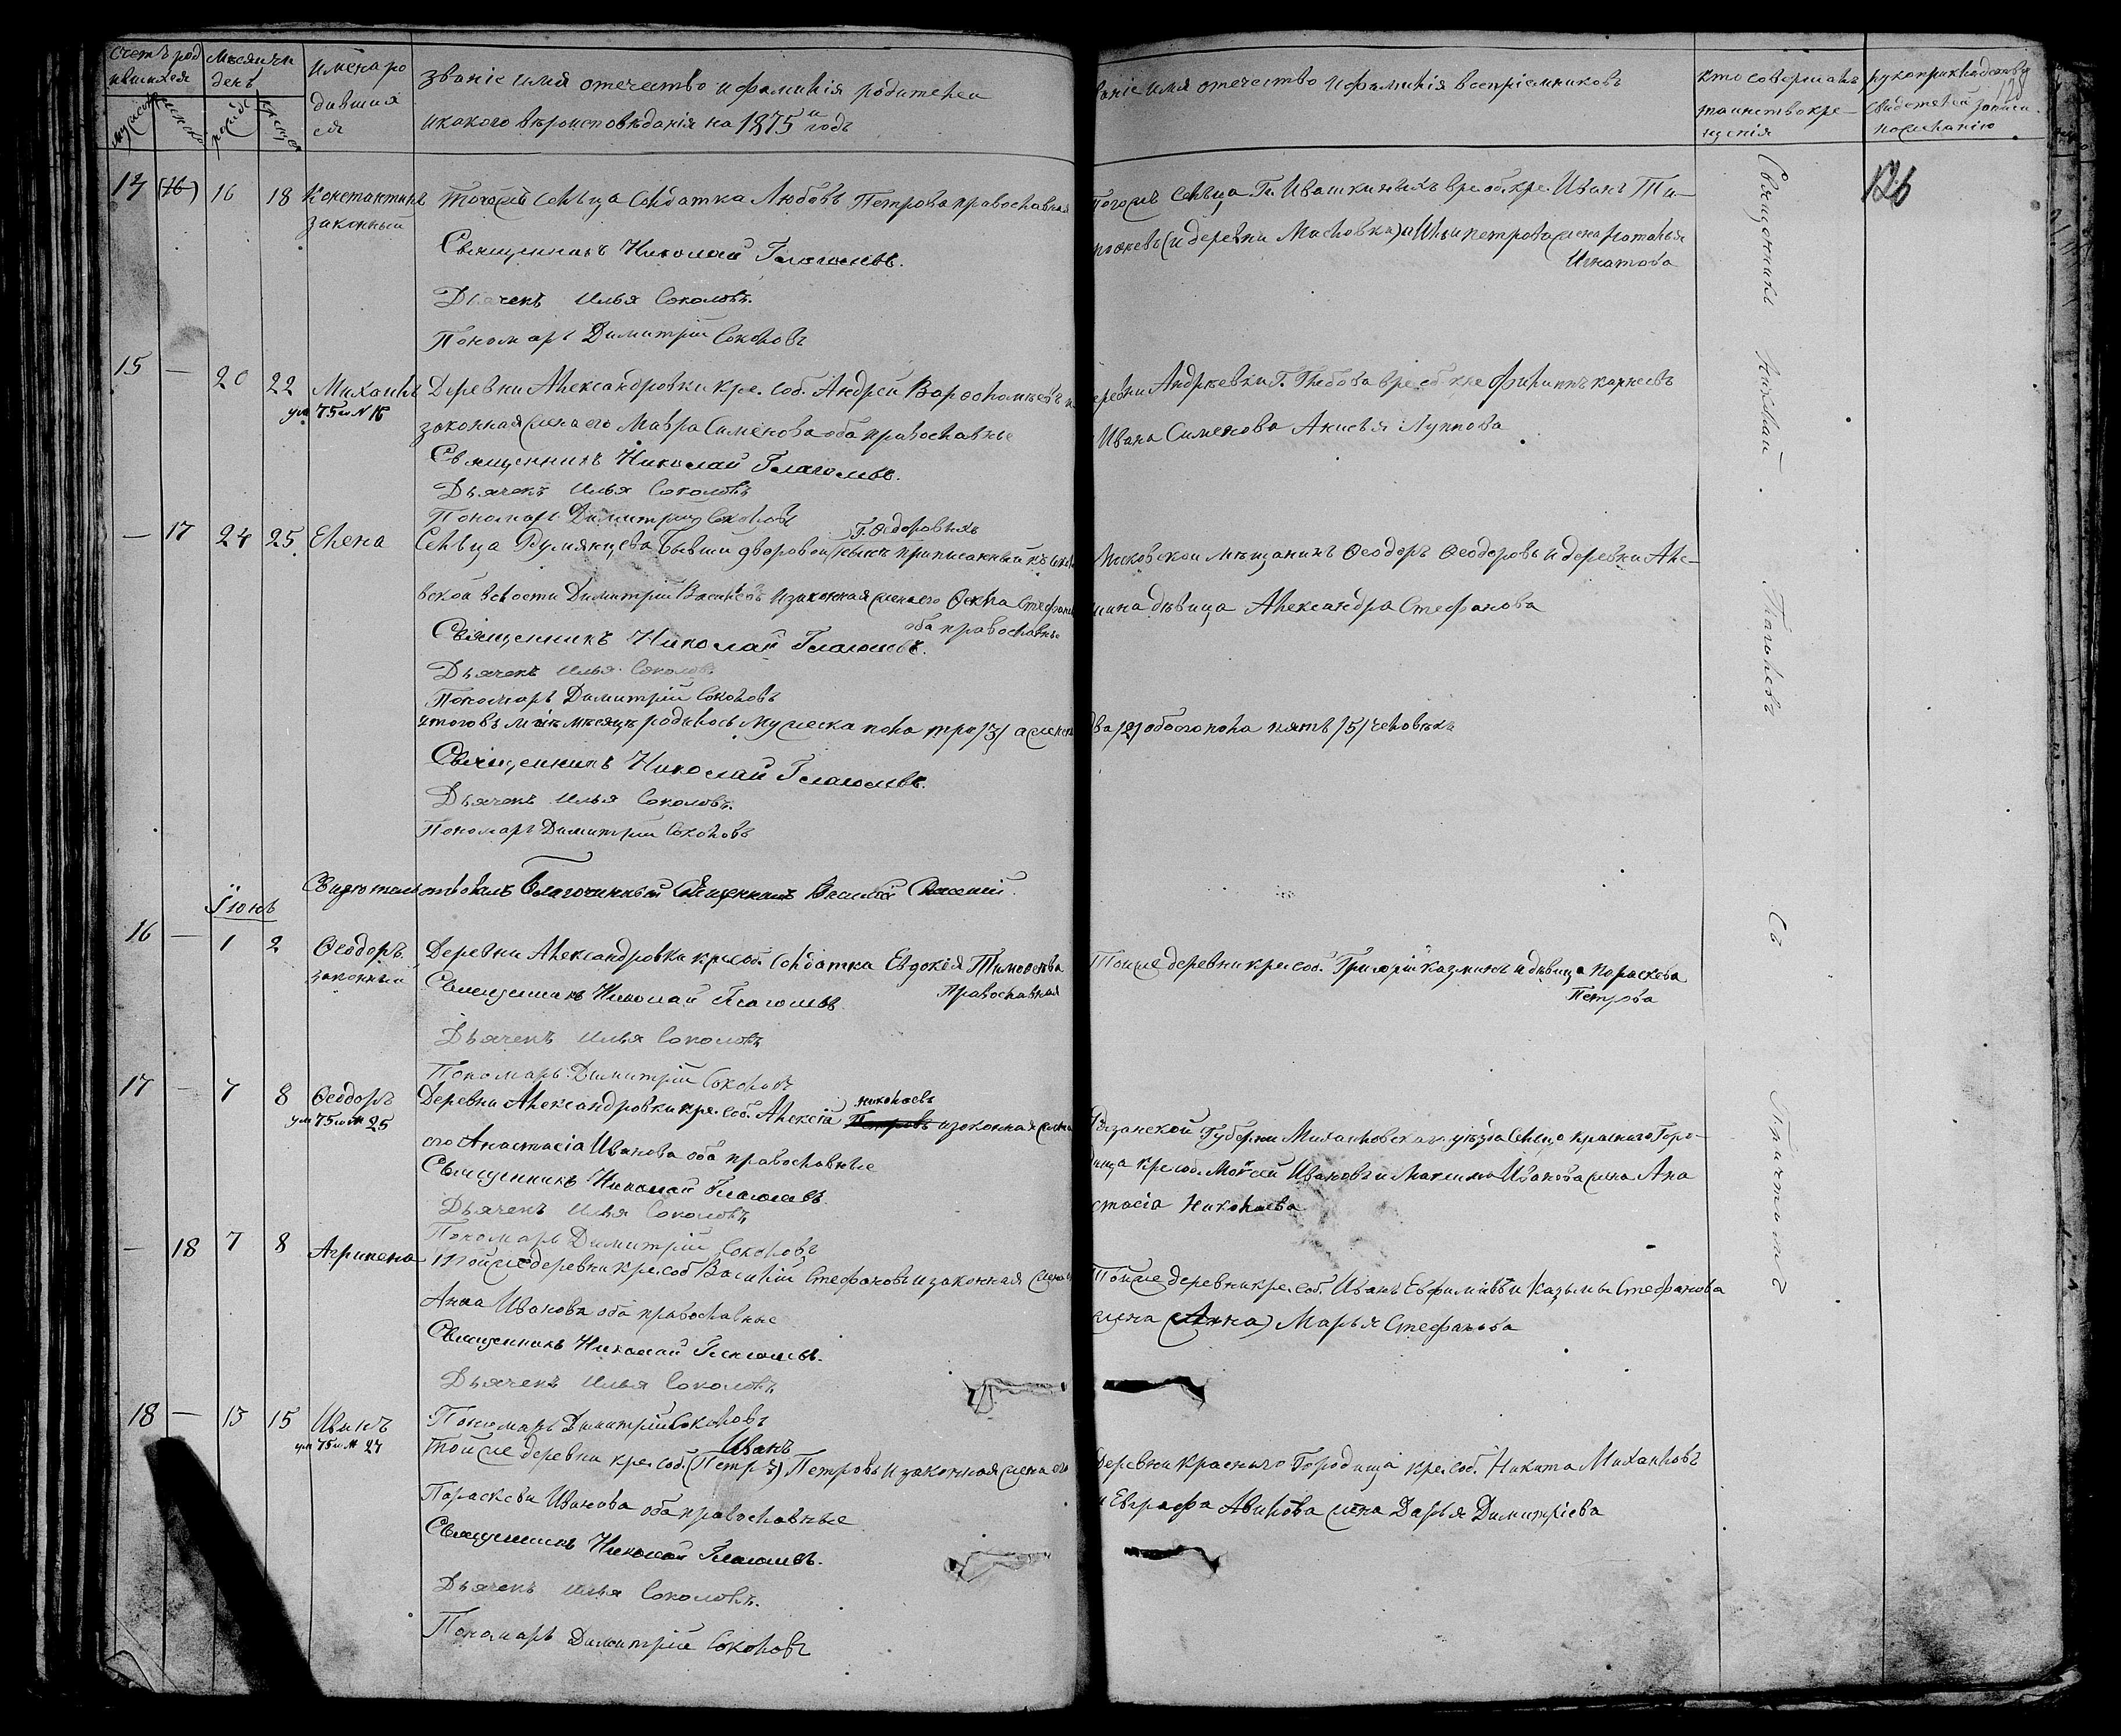 Счетъ род
ившихся
Мѣсяц и
день
Имена ро
дивших
ся
званіе имя отечество и фамилія родителей
и какого вѣроисповѣданія на 1875й годъ
званіе имя отечество и фамилія воспріемниковъ
кто совершалъ
таинство кре-
щенія
рукоприкладство
свидетелей записи
по желанію
128
126
14 (16) 16 18 Константинъ
законный
Тогоже сельца солдатка Любовь Петрова православная
Священникъ Николай Глаголевъ.
Дьячекъ Илья Соколовъ.
Пономарь Димитрій Соколовъ
Тогожъ сельца Г. Ивашкиныхъ вре. об. кре. Иванъ Ти-
(и деревни Масловки) и Ильи Петрова жена Наталья
Игнатова
15 — 20 22 Михаилъ
ум 75 го N 16
Деревни Александровки кре. соб. Андрей Варѳоломѣевъ и
законная жена его Мавра Симеонова оба православные
Священникъ Николай Глаголевъ.
Дьячекъ Илья Соколовъ
Пономарь Димитрій Соколовъ
деревни Андреевки Г. Глебова вре. об. кре Филиппъ Карнеевъ
Ивана Симеонова Анисья Луппова
— 17 24 25 Елена
Г. Ѳедоровыхъ
Сельца Румянцева бывши дворовой нынѣ приписанный къ
вской волости Димитрій Васильевъ и законная жена его Ѳекла Стефанова
оба православные
Священникъ Николай Глаголевъ.
Дьячекъ Илья Соколовъ
Пономарь Димитрій Соколовъ
Московской мѣщанинъ Ѳеодоръ Ѳеодоровъ и деревни Але-
шина дѣвица Александра Стефанова
Итого въ маѣ мѣсяцѣ родилось мужеска пола три /3/ а женска
два /2/ обоего пола пять /5/ человѣкъ
Священникъ Николай Глаголевъ.
Дьячекъ Илья Соколовъ.
Пономарь Димитрій Соколовъ
Свидѣтельствовалъ Благочинный Священникъ Василій
Іюнь
16 — 1 2 Ѳеодоръ
законный
Деревни Александровки кре. соб. солдатка Евдокія Тимоѳеева
Православная
Священникъ Николай Глаголевъ.
Дьячекъ Илья Соколовъ
Пономарь Димитрій Соколовъ
Тойже деревни кре. соб. Григорій Казминъ и дѣвица Параскева
Петрова
17 — 7 8 Ѳеодоръ
ум 75 го N 25
Николаевъ
Деревни Александровки кре. соб. Алексѣй Петровъ и законная жена
его Анастасія Иванова оба православные
Священникъ Николай Глаголевъ
Дьячекъ Илья Соколовъ
Пономарь Димитрій Соколовъ
Рязанской Губерни Михайловскаго уѣзда сельцо Краснаго Горо-
дища кре. соб. Мокей Ивановъ и Максима Иванова жена Ана
стасія Николаева
— 18 7 8 Агрипена
Тойже деревни кре. соб Василій Стефановъ и законная жена
Анна Иванова оба православные
Священникъ Николай Глаголевъ.
Дьячекъ Илья Соколовъ
Пономарь Димитрій Соколовъ
Тойже деревни кре. соб. Иванъ Евфимѣевъ и Казьмы Стефанова
жена (Анна) Марья Стефаньва
18 — 13 15 Иванъ
ум 75 го N 27
Иванъ
Тойже деревни кре. соб. (Петръ) Петровъ и законная жена его
Параскева Иванова оба православные
Священникъ Николай Глаголевъ.
Дьячекъ Илья Соколовъ.
Пономарь Димитрій Соколовъ
Деревни Краснаго Городища кре. соб. Никита Михайловъ
и Евграфа Авилова жена Дарья Димитріева
Священникъ Николай Глаголевъ
Съ Причтомъ